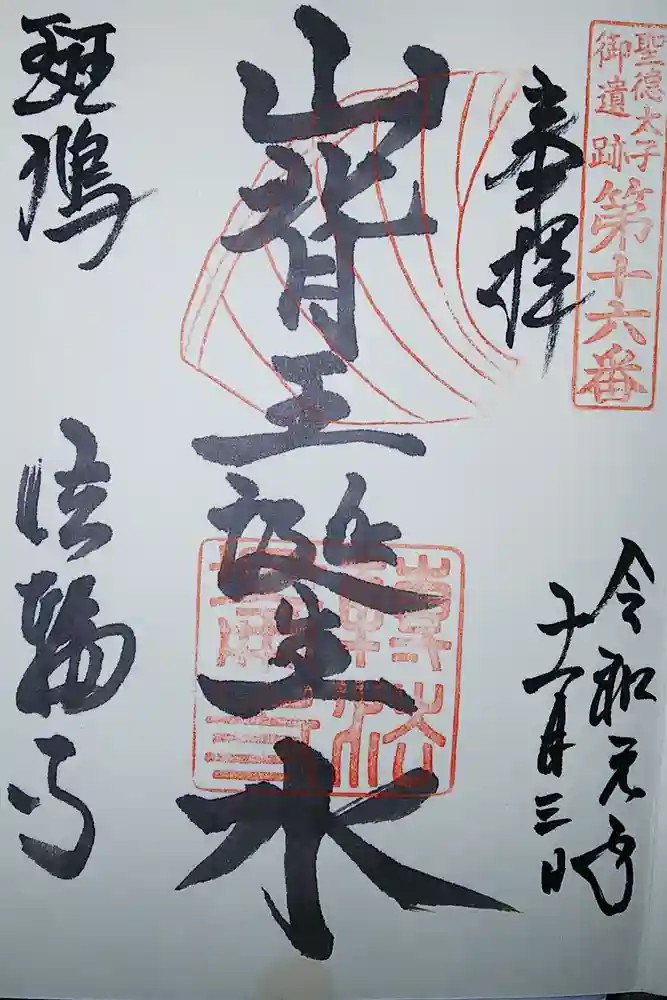 聖徳太子
御遺跡 第十六番
奉拝
令和元年
十一月三日
山背王誕生水
斑鳩 法輪寺